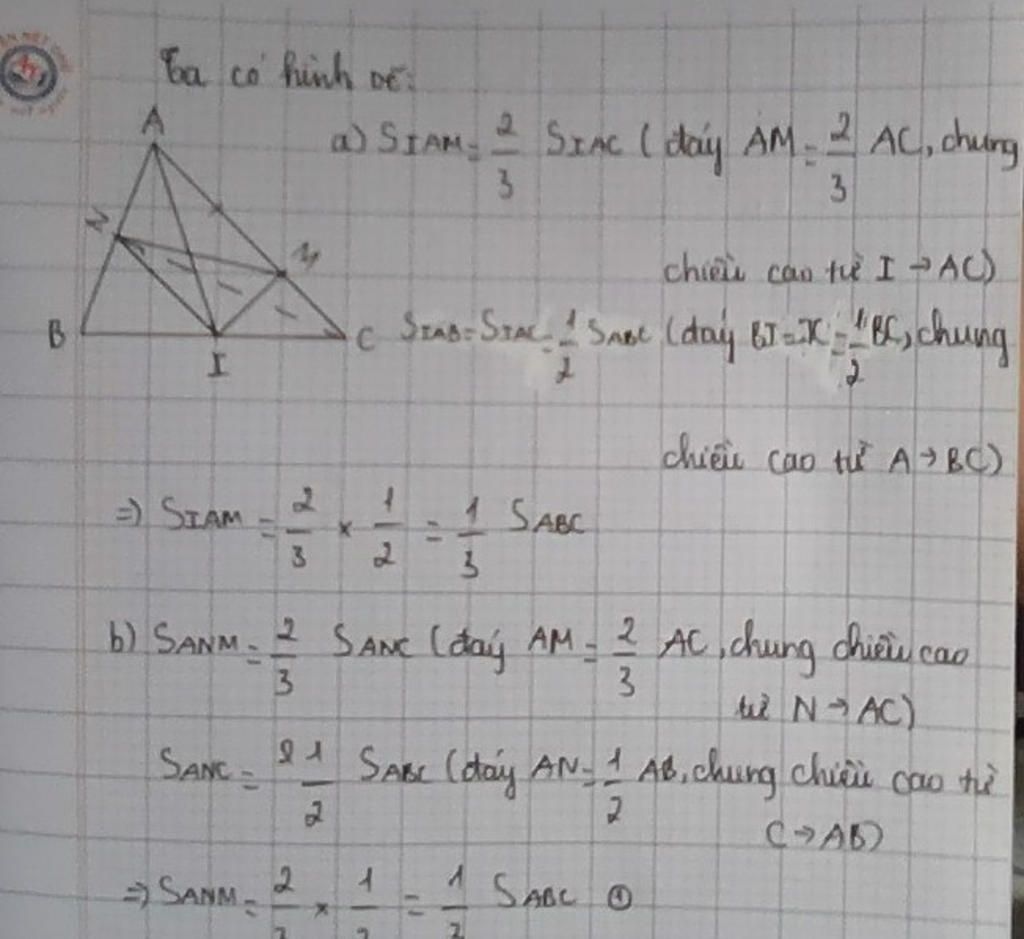 Ta có hình vẽ:
A
a) SIAM = 2/3 SIAC (đáy AM = 2/3 AC, chung
N
M
chiều cao từ I → AC)
B
I
C
SIAB = SIAC = 1/2 SABC (đáy BI = IC = 1/2 BC, chung
chiều cao từ A → BC)
=> SIAM = 2/3 × 1/2 = 1/3 SABC
b) SANM = 2/3 SANC (đáy AM = 2/3 AC, chung chiều cao
từ N → AC)
SANC = 1/2 SABC (đáy AN = 1/2 AB, chung chiều cao từ
C → AB)
=> SANM = 2/3 × 1/2 = 1/3 SABC ①